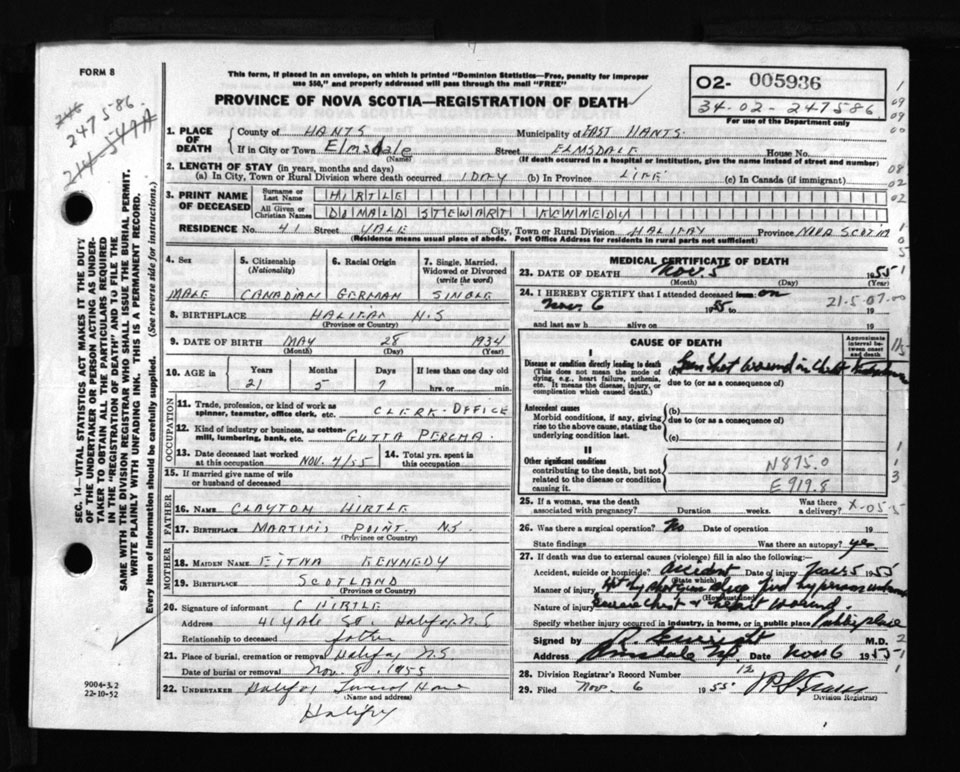 FORM 8
This form, if placed in an envelope, on which is printed "Dominion Statistics—Free, penalty for improper
use $50," and properly addressed will pass through the mail "FREE"
PROVINCE OF NOVA SCOTIA—REGISTRATION OF DEATH
02- 005936
34-02-247586
For use of the Department only
247586
SEC. 14—VITAL STATISTICS ACT MAKES IT THE DUTY
OF THE UNDERTAKER OR PERSON ACTING AS UNDER-
TAKER TO OBTAIN ALL THE PARTICULARS REQUIRED
IN THE "REGISTRATION OF DEATH" AND TO FILE THE
SAME WITH THE DIVISION REGISTRAR WHO SHALL ISSUE THE BURIAL PERMIT.
WRITE PLAINLY WITH UNFADING INK. THIS IS A PERMANENT RECORD.
Every item of information should be carefully supplied. (See reverse side for instructions.)
1. PLACE OF DEATH
County of HANTS Municipality of EAST HANTS
If in City or Town Elmsdale Street ELMSDALE House No.
(Name) (If death occurred in a hospital or institution, give the name instead of street and number)
2. LENGTH OF STAY (in years, months and days)
(a) In City, Town or Rural Division where death occurred 1 DAY (b) In Province LIFE (c) In Canada (if immigrant)
3. PRINT NAME OF DECEASED
Surname or Last Name HIRTLE
All Given or Christian Names DONALD STEWART KENNEDY
RESIDENCE No. 41 Street YALE City, Town or Rural Division HALIFAX Province NOVA SCOTIA
(Residence means usual place of abode. Post Office Address for residents in rural parts not sufficient)
4. Sex
MALE
5. Citizenship (Nationality)
CANADIAN
6. Racial Origin
GERMAN
7. Single, Married, Widowed or Divorced (write the word)
SINGLE
8. BIRTHPLACE HALIFAX N.S
(Province or Country)
9. DATE OF BIRTH MAY 28 1934
(Month) (Day) (Year)
10. AGE in Years Months Days If less than one day
21 5 7 hrs. or min.
OCCUPATION
11. Trade, profession, or kind of work as
spinner, teamster, office clerk, etc. CLERK-OFFICE
12. Kind of industry or business, as cotton-
mill, lumbering, bank, etc. GUTTA PERCHA.
13. Date deceased last worked
at this occupation NOV. 4/55
14. Total yrs. spent in
this occupation
15. If married give name of wife
or husband of deceased
FATHER
16. NAME CLAYTON HIRTLE
17. BIRTHPLACE POINT. N.S.
(Province or Country)
MOTHER
18. MAIDEN NAME KENNEDY
19. BIRTHPLACE SCOTLAND
(Province or Country)
20. Signature of informant C HIRTLE
Address 41 Yale St. Halifax, N.S
Relationship to deceased father
21. Place of burial, cremation or removal Halifax N.S.
Date of burial or removal Nov. 8, 1955
22. UNDERTAKER Halifax Funeral Home
(Name and address)
Halifax
9004-3.2
22-10-52
MEDICAL CERTIFICATE OF DEATH
23. DATE OF DEATH Nov 5 1955
(Month) (Day)
24. I HEREBY CERTIFY that I attended deceased on
Nov. 6 1955 to 21.5.07.00
and last saw h alive on
CAUSE OF DEATH
Approximate interval between onset and death
I
Disease or condition directly leading to death
(This does not mean the mode of
dying, e.g., heart failure, asthenia,
etc. It means the disease, injury, or
complication which caused death.)
Gun Shot wound in Chest
due to (or as a consequence of)
Antecedent causes
Morbid conditions, if any, giving
rise to the above cause, stating the
underlying condition last.
(b)
due to (or as a consequence of)
(c)
II
Other significant conditions
contributing to the death, but not
related to the disease or condition
causing it.
N875.0
E919.8
25. If a woman, was the death
associated with pregnancy? Duration weeks. Was there a delivery? X-05-5
26. Was there a surgical operation? No Date of operation 19
State findings Was there an autopsy? yes.
27. If death was due to external causes (violence) fill in also the following:—
Accident, suicide or homicide? Accident Date of injury 5 1955
(State which)
Manner of injury
(How sustained)
Nature of injury Severe chest + heart wound.
Specify whether injury occurred in industry, in home, or in public place Public place
Signed by M.D.
Address Date Nov 6 1955
28. Division Registrar's Record Number 12
29. Filed Nov. 6 1955
Division Registrar